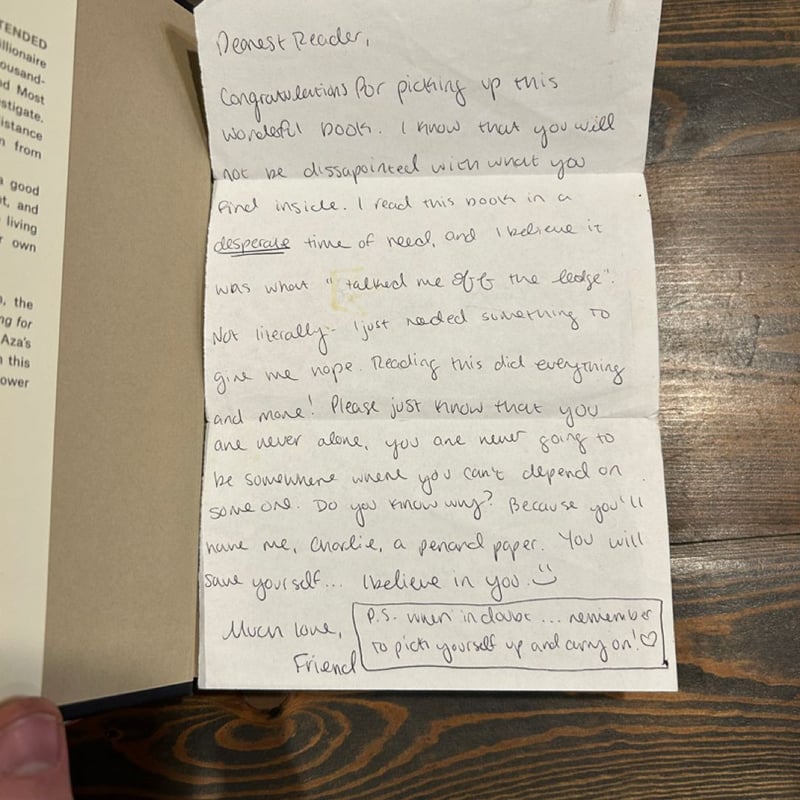 TENDED
illionaire
ousand-
d Most
stigate.
istance
n from
a good
it, and
living
r own
, the
ng for
Aza's
this
ower
Dearest Reader,
Congratulations for picking up this
wonderful book. I know that you will
not be dissapointed with what you
find inside. I read this book in a
desperate time of need, and I believe it
was what "talked me off the ledge".
Not literally- I just needed something to
give me hope. Reading this did everything
and more! Please just know that you
are never alone, you are never going to
be somewhere where you can't depend on
someone. Do you know why? Because you'll
have me, Charlie, a pen and paper. You will
save yourself... I believe in you. :)
Much love,
Friend
P.S. when in doubt ... remember
to pick yourself up and carry on! ♡